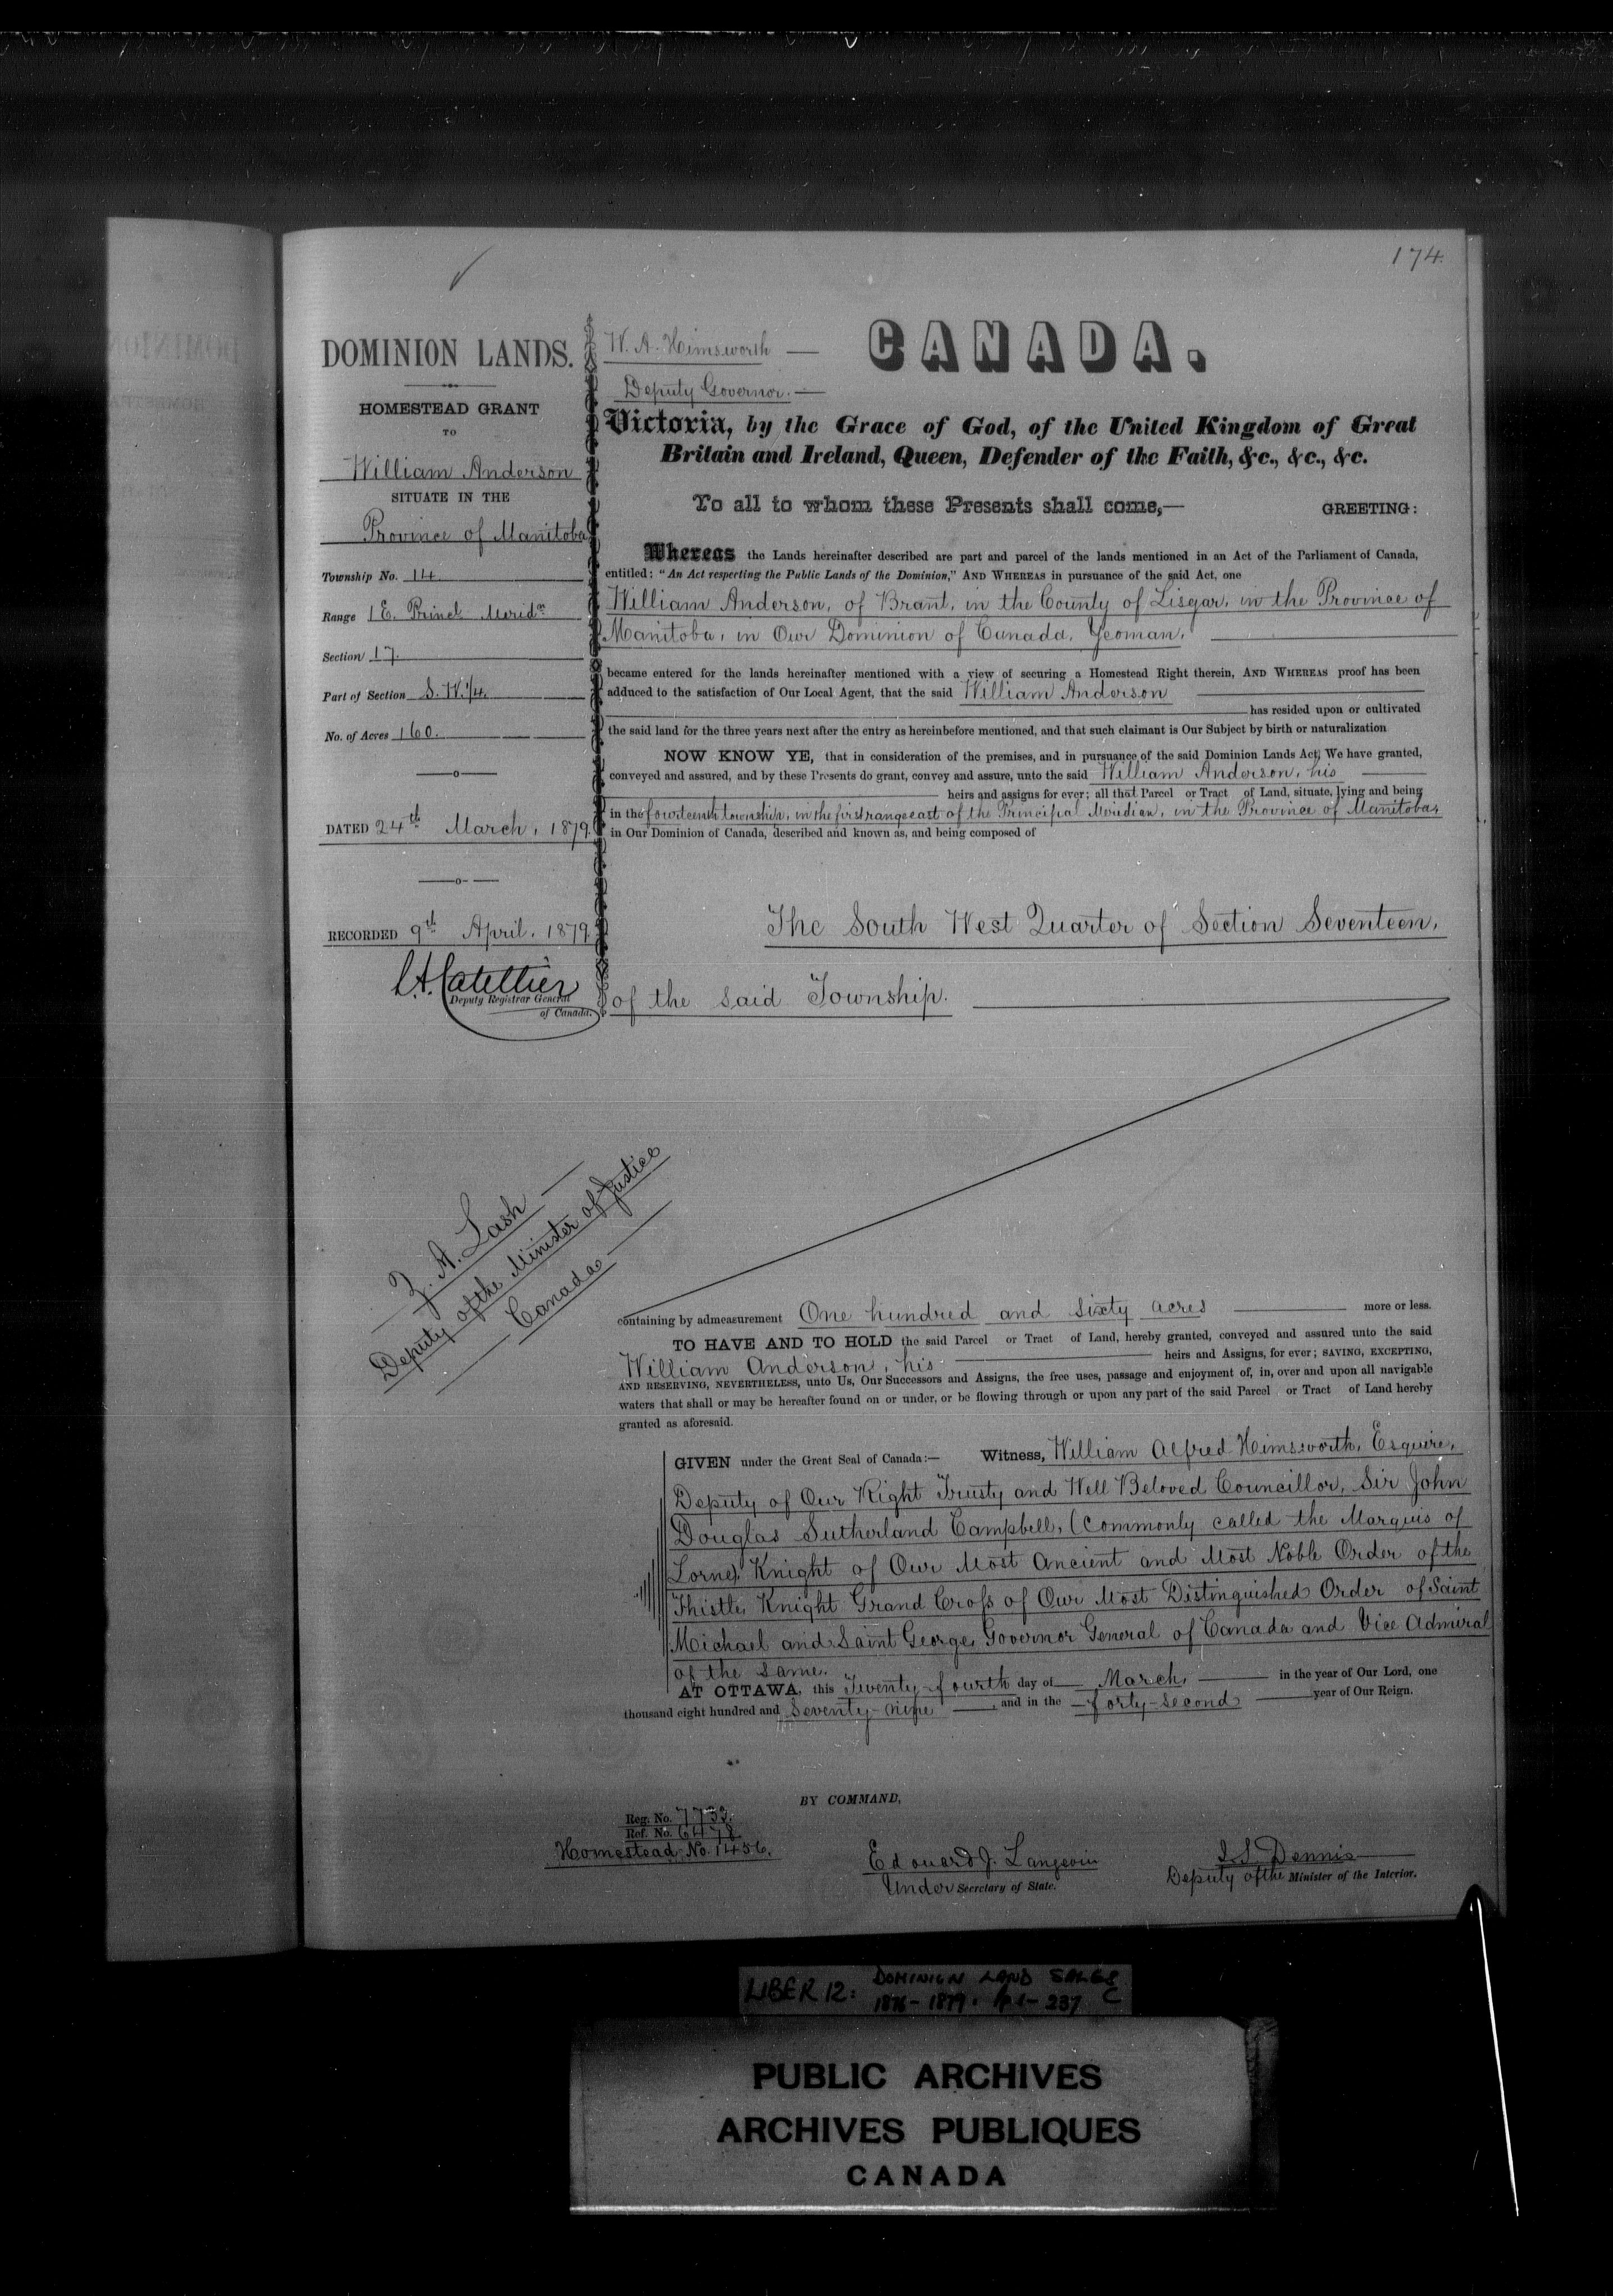 174.
DOMINION LANDS.
HOMESTEAD GRANT
TO
William Anderson
SITUATE IN THE
Province of Manitoba
Township No. 14.
Range 1 E. Princl. Merid.
Section 17.
Part of Section S. W. 1/4.
No. of Acres 160.
DATED 24th March, 1879.
RECORDED 9th April, 1879.
Deputy Registrar General
of Canada.
W. A. Himsworth —
Deputy Governor. —
CANADA.
Victoria, by the Grace of God, of the United Kingdom of Great
Britain and Ireland, Queen, Defender of the Faith, &c., &c., &c.
To all to whom these Presents shall come,— GREETING:
Whereas the Lands hereinafter described are part and parcel of the lands mentioned in an Act of the Parliament of Canada,
entitled: "An Act respecting the Public Lands of the Dominion," AND WHEREAS in pursuance of the said Act, one
William Anderson, of Brant, in the County of Lisgar, in the Province of
Manitoba, in Our Dominion of Canada, Yeoman,
became entered for the lands hereinafter mentioned with a view of securing a Homestead Right therein, AND WHEREAS proof has been
adduced to the satisfaction of Our Local Agent, that the said William Anderson
has resided upon or cultivated
the said land for the three years next after the entry as hereinbefore mentioned, and that such claimant is Our Subject by birth or naturalization
NOW KNOW YE, that in consideration of the premises, and in pursuance of the said Dominion Lands Act, We have granted,
conveyed and assured, and by these Presents do grant, convey and assure, unto the said William Anderson, his
heirs and assigns for ever; all that Parcel or Tract of Land, situate, lying and being
in the fourteenth township, in the first range east of the Principal Meridian, in the Province of Manitoba,
in Our Dominion of Canada, described and known as, and being composed of
The South West Quarter of Section Seventeen,
of the said Township.
Z. A. Lash —
Deputy of the Minister of Justice
Canada
containing by admeasurement One hundred and sixty acres more or less.
TO HAVE AND TO HOLD the said Parcel or Tract of Land, hereby granted, conveyed and assured unto the said
William Anderson, his heirs and Assigns, for ever; SAVING, EXCEPTING,
AND RESERVING, NEVERTHELESS, unto Us, Our Successors and Assigns, the free uses, passage and enjoyment of, in, over and upon all navigable
waters that shall or may be hereafter found on or under, or be flowing through or upon any part of the said Parcel or Tract of Land hereby
granted as aforesaid.
GIVEN under the Great Seal of Canada:— Witness, William Alfred Himsworth, Esquire,
Deputy of Our Right Trusty and Well Beloved Councillor, Sir John
Douglas Sutherland Campbell, (Commonly called the Marquis of
Lorne) Knight of Our Most Ancient and Most Noble Order of the
Thistle, Knight Grand Cross of Our Most Distinguished Order of Saint
Michael and Saint George, Governor General of Canada and Vice Admiral
of the same.
AT OTTAWA, this Twenty-fourth day of March, in the year of Our Lord, one
thousand eight hundred and Seventy-nine, and in the forty-second year of Our Reign.
BY COMMAND,
Reg. No.
Ref. No.
Homestead No. 1456.
Edouard J. Langevin
Under Secretary of State.
J. S. Dennis
Deputy of the Minister of the Interior.
LIBER 12: DOMINION LAND SALES
1876-1879. pp. 1-237 C
PUBLIC ARCHIVES
ARCHIVES PUBLIQUES
CANADA